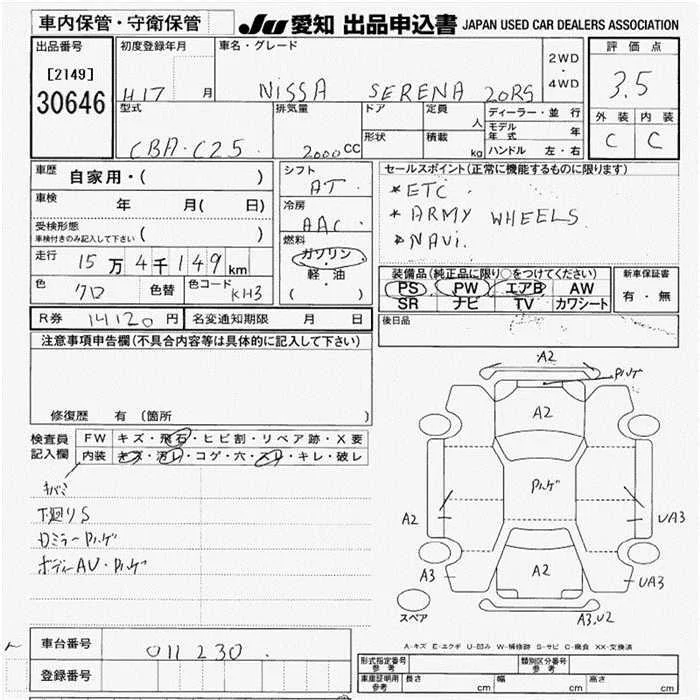 車内保管・守衛保管
JU 愛知 出品申込書 JAPAN USED CAR DEALERS ASSOCIATION
出品番号 初度登録年月 車名・グレード 評価点
[2149]
30646
H17 月 NiSSA SERENA 20RS 2WD・4WD 3.5
型式 排気量 ドア 定員 人 ディーラー・並行 外装 内装
CBA・C25 2000cc 形状 積載 kg モデル年式 年 C C
ハンドル 左・右
車歴 自家用・( ) シフト AT セールスポイント(正常に機能するものに限ります)
車検 年 月( 日) 冷房 AAC *ETC
受検形態 *ARMY WHEELS
車検付きのみ記入して下さい ( ) 燃料 *NAVi.
走行 15万4千149km ガソリン・軽油 ( )
装備品(純正品に限り○をつけてください) 新車保証書
色 クロ 色替 色コード KH3 PS PW エアB AW 有・無
SR ナビ TV カワシート
R券 14120円 名変通知期限 月 日 後日品
注意事項申告欄(不具合内容等は具体的に記入して下さい)
修復歴 有(箇所 )
検査員記入欄 FW キズ・飛石・ヒビ割・リペア跡・X要
内装 キズ・汚レ・コゲ・穴・スレ・キレ・破レ
キバミ
下廻りS
Dミラー Pハゲ
ボディーAU・Pハゲ
A2
Pハゲ
A2
Pハゲ
A2 UA3
A2
A3 UA3
スペア A3,U2
A-キズ E-エクボ U-凹み W-補修跡 S-サビ C-腐食 XX-交換済
車台番号 011230
登録番号
形式指定番号 参考 類別区分番号 参考
車庫証明用 参考 長さ cm 幅 cm 高さ cm